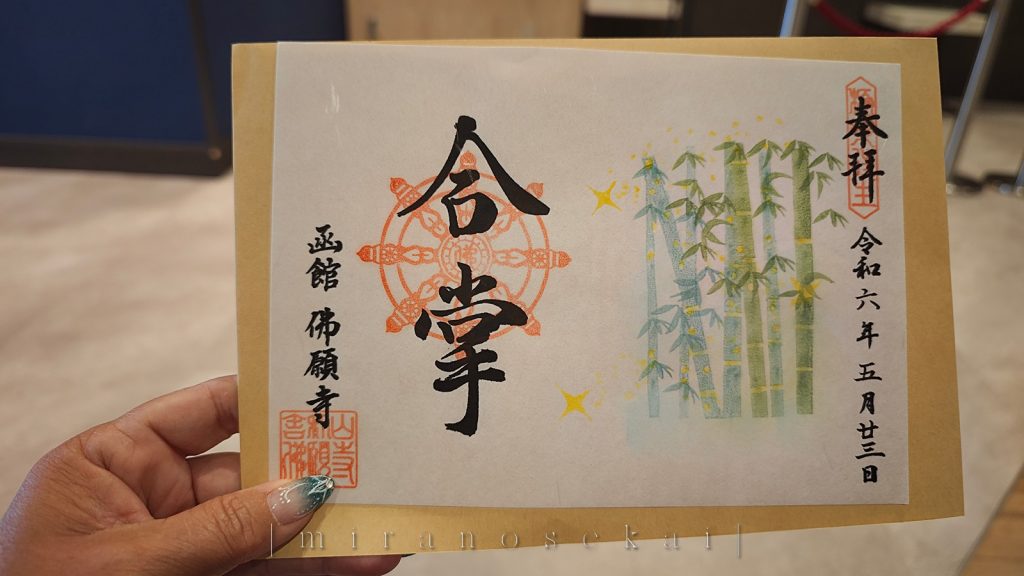 奉拝
令和六年五月廿三日
合掌
函館 佛願寺
|miranosekai|